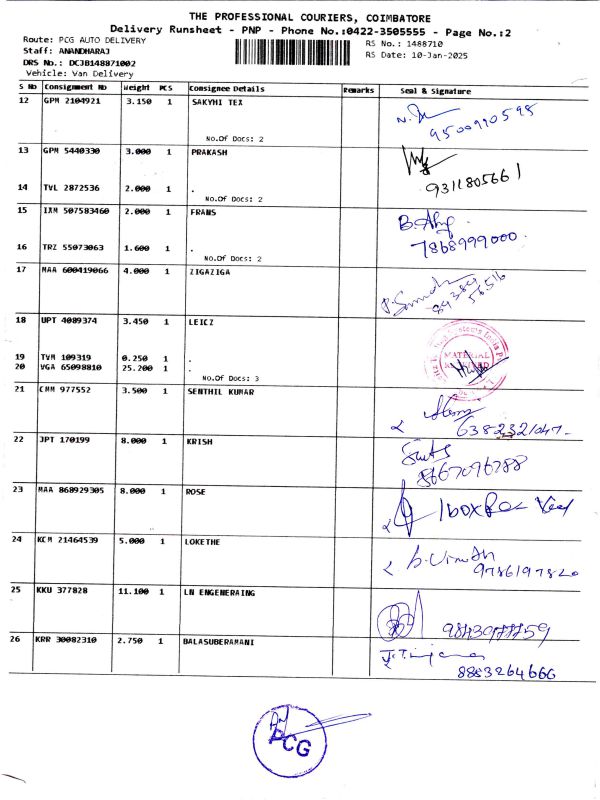 THE PROFESSIONAL COURIERS, COIMBATORE
Delivery Runsheet - PNP - Phone No.:0422-3505555 - Page No.:2
Route: PCG AUTO DELIVERY
RS No.: 1488710
Staff: ANANDHARAJ
RS Date: 10-Jan-2025
DRS No.: DCJB148871002
Vehicle: Van Delivery
S No Consignment No Weight PCS Consignee Details Remarks Seal & Signature
12 GPM 2104921 3.150 1 SAKYHI TEX
9500990598
No.Of Docs: 2
13 GPM 5440330 3.000 1 PRAKASH
14 TVL 2872536 2.000 1 . 9311805661
No.Of Docs: 2
15 IXM 507583460 2.000 1 FRANS
7868999000.
16 TRZ 55073063 1.600 1 .
No.Of Docs: 2
17 MAA 600419066 4.000 1 ZIGAZIGA
89389
56516
18 UPT 4089374 3.450 1 LEICZ
MATERIAL
19 TVM 109319 0.250 1 .
20 VGA 65098810 25.200 1 .
No.Of Docs: 3
21 CHM 977552 3.500 1 SENTHIL KUMAR
6382321047-
22 JPT 170199 8.000 1 KRISH
8667096788
23 MAA 868929305 8.000 1 ROSE
1 box
24 KCM 21464539 5.000 1 LOKETHE
9786197820
25 KKU 377828 11.100 1 LN ENGENERAING
9843977759
26 KRR 30082310 2.750 1 BALASUBERAMANI
8883264666
PCG